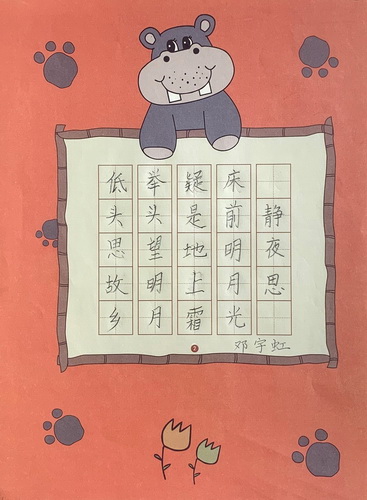 静夜思
床前明月光
疑是地上霜
举头望明月
低头思故乡
邓宇虹
2